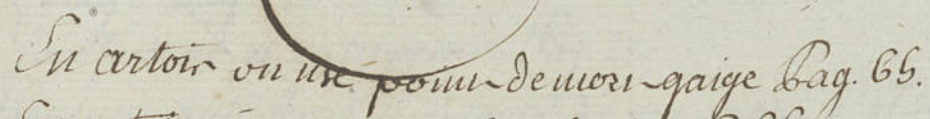 En artois on use point de mort gaige Pag. 65.